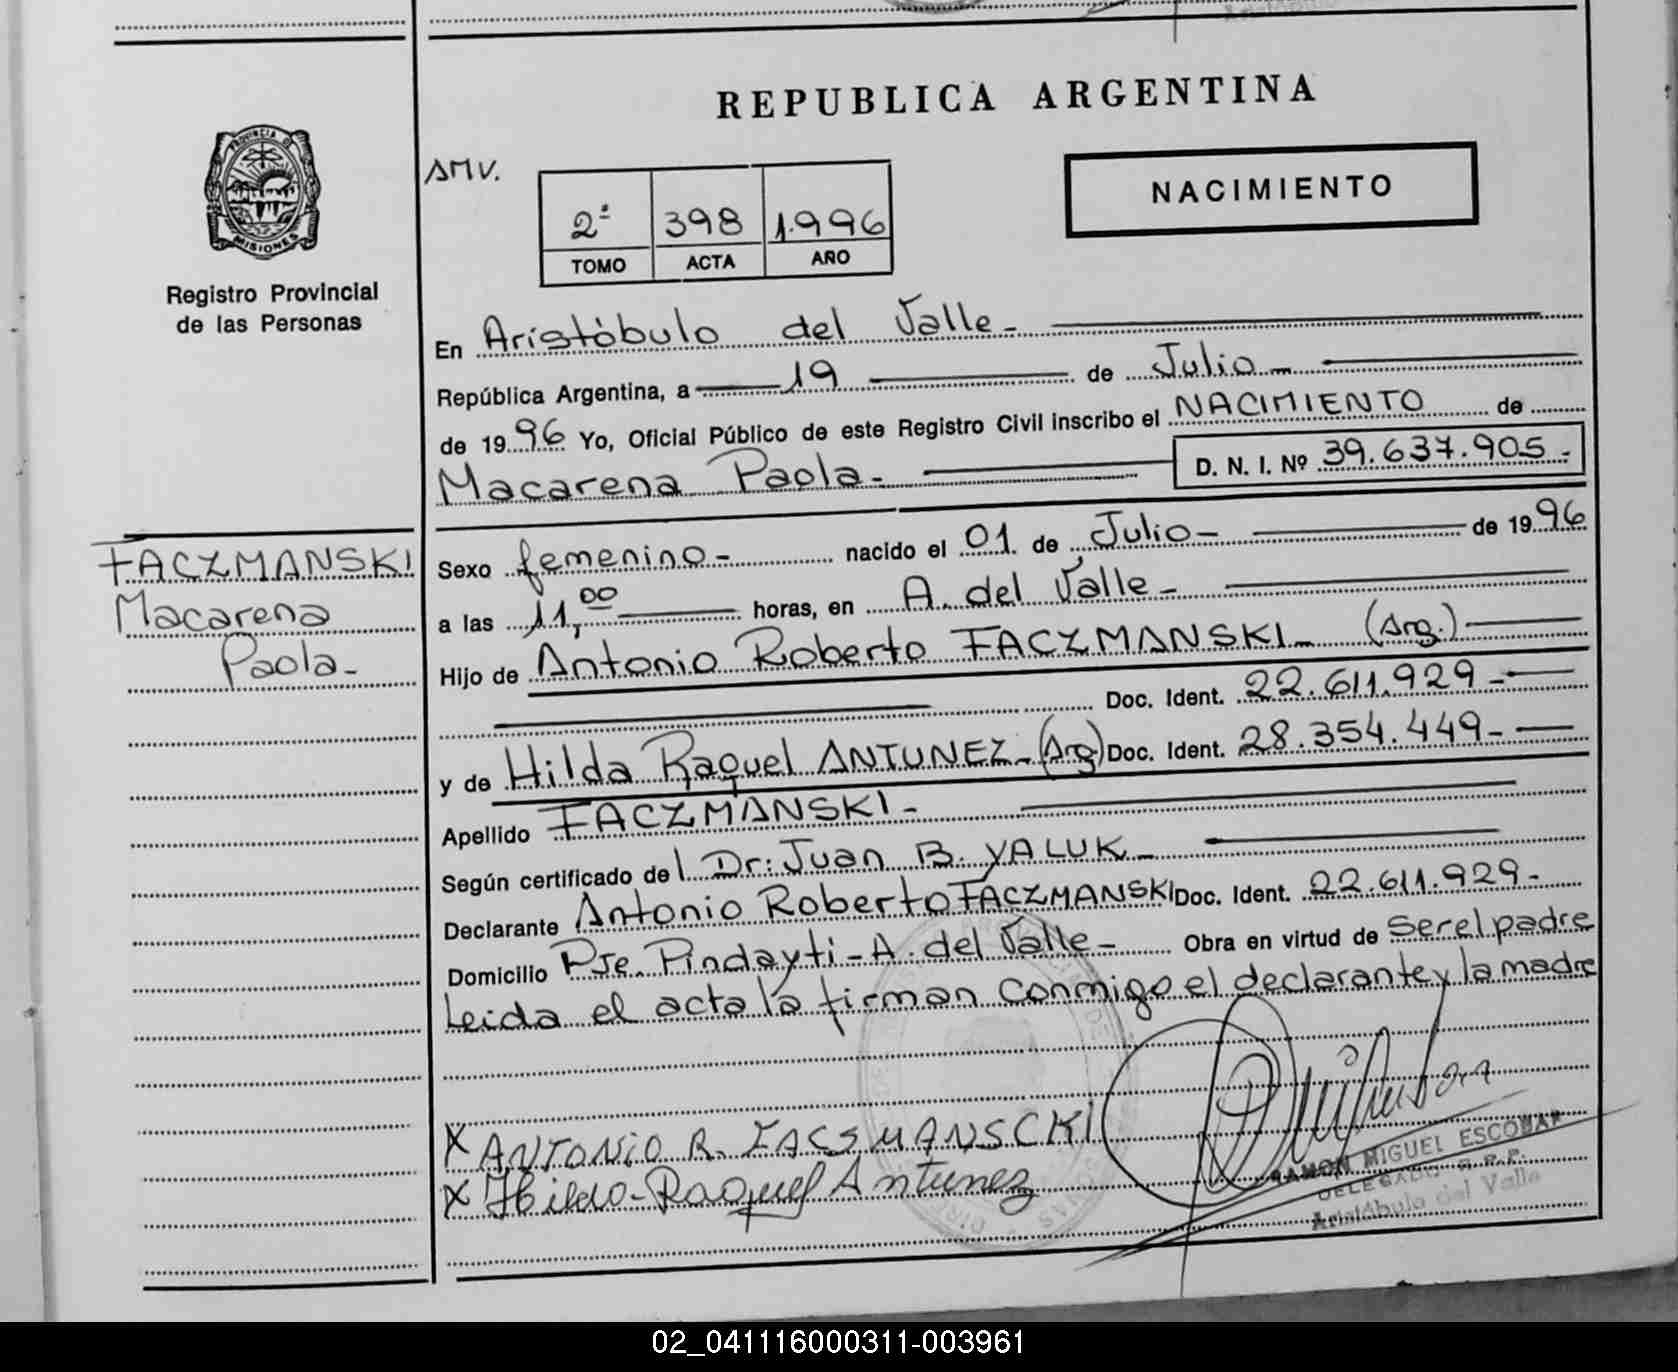 REPUBLICA ARGENTINA
PROVINCIA DE
MISIONES
Registro Provincial
de las Personas
AMV.
2º 398 1.996
TOMO ACTA AÑO
NACIMIENTO
En Aristóbulo del Valle-
República Argentina, a 19 de Julio-
de 1996 Yo, Oficial Público de este Registro Civil inscribo el NACIMIENTO de
Macarena Paola- D. N. I. Nº 39.637.905-
FACZMANSKI
Macarena
Paola-
Sexo femenino- nacido el 01 de Julio- de 1996
a las 11,00 horas, en A. del Valle-
Hijo de Antonio Roberto FACZMANSKI- (Arg.)
Doc. Ident. 22.611.929-
y de Hilda Raquel ANTUNEZ- (Arg) Doc. Ident. 28.354.449-
Apellido FACZMANSKI-
Según certificado del Dr: Juan B. YALUK-
Declarante Antonio Roberto FACZMANSKI Doc. Ident. 22.611.929-
Domicilio Pje. Pindayti-A. del Valle- Obra en virtud de Ser el padre
Leida el acta la firman conmigo el declarante y la madre
X ANTONIO R. FACSMANSCKI
X Hilda-Raquel Antunez
RAMON MIGUEL ESCOBAR
DELEGADO R.R.P.
Aristóbulo del Valle
02_041116000311-003961